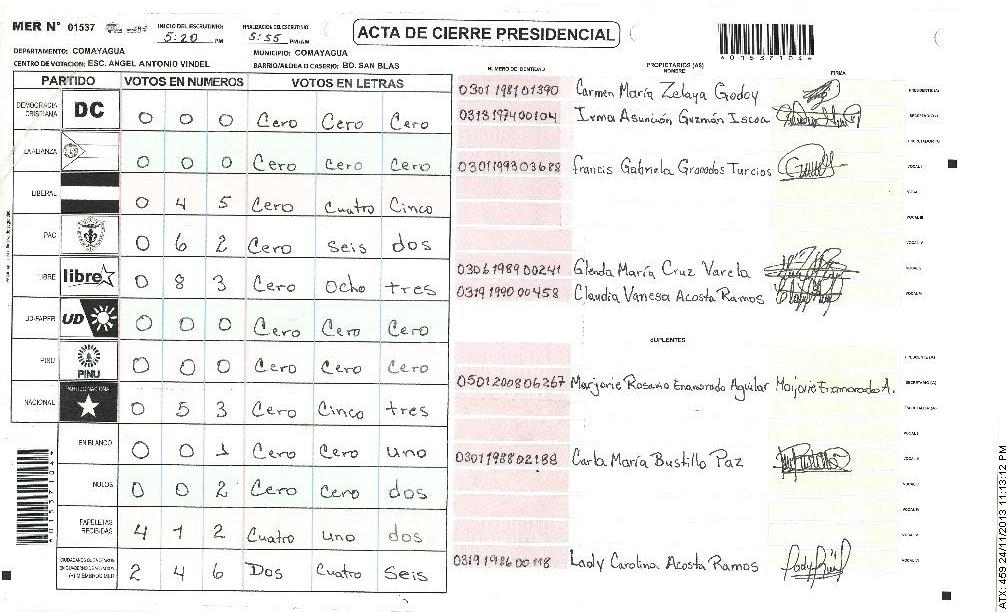 MER Nº 01537
INICIO DEL ESCRUTINIO: 5:20 PM
FINALIZACION DEL ESCRUTINIO: 5:55 PM/AM
ACTA DE CIERRE PRESIDENCIAL
DEPARTAMENTO: COMAYAGUA
MUNICIPIO: COMAYAGUA
CENTRO DE VOTACION: ESC. ANGEL ANTONIO VINDEL
BARRIO/ALDEA O CASERIO: BO. SAN BLAS
PARTIDO VOTOS EN NUMEROS VOTOS EN LETRAS
DEMOCRACIA CRISTIANA DC 0 0 0 Cero Cero Cero
0 0 0 Cero Cero Cero
LIBERAL 0 4 5 Cero Cuatro Cinco
PAC 0 6 2 Cero seis dos
LIBRE libre 0 8 3 Cero Ocho tres
UD-FAPER UD 0 0 0 Cero Cero Cero
PINU PINU 0 0 0 Cero Cero Cero
NACIONAL 0 5 3 Cero Cinco tres
EN BLANCO 0 0 1 Cero Cero uno
NULOS 0 0 2 Cero Cero dos
PAPELETAS RECIBIDAS 4 1 2 Cuatro uno dos
2 4 6 Dos Cuatro Seis
NUMERO DE IDENTIDAD
PROPIETARIOS (AS)
NOMBRE
FIRMA
0301198101390 Carmen María Zelaya Godoy PRESIDENTE(A)
0313197400104 Irma Asunción Guzmán Iscoa
0301199303688 francis Gabriela Granados Turcios
0306198900241 Glenda María Cruz Varela
0319199000458 Claudia Vanesa Acosta Ramos
SUPLENTES
PRESIDENTE(A)
0501200806267 Marjorie Rosario Enamorado Aguilar Marjorie Enamorado A. SECRETARIO(A)
0301198802188 Carla María Bustillo Paz
0319198600118 Lady Carolina Acosta Ramos
ATX: 459 24/11/2013 11:13:12 PM